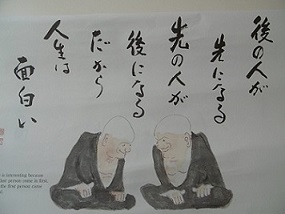 後の人が
先になる
先の人が
後になる
だから
人生は
面白い
is interesting because
last person come in first,
the first person come